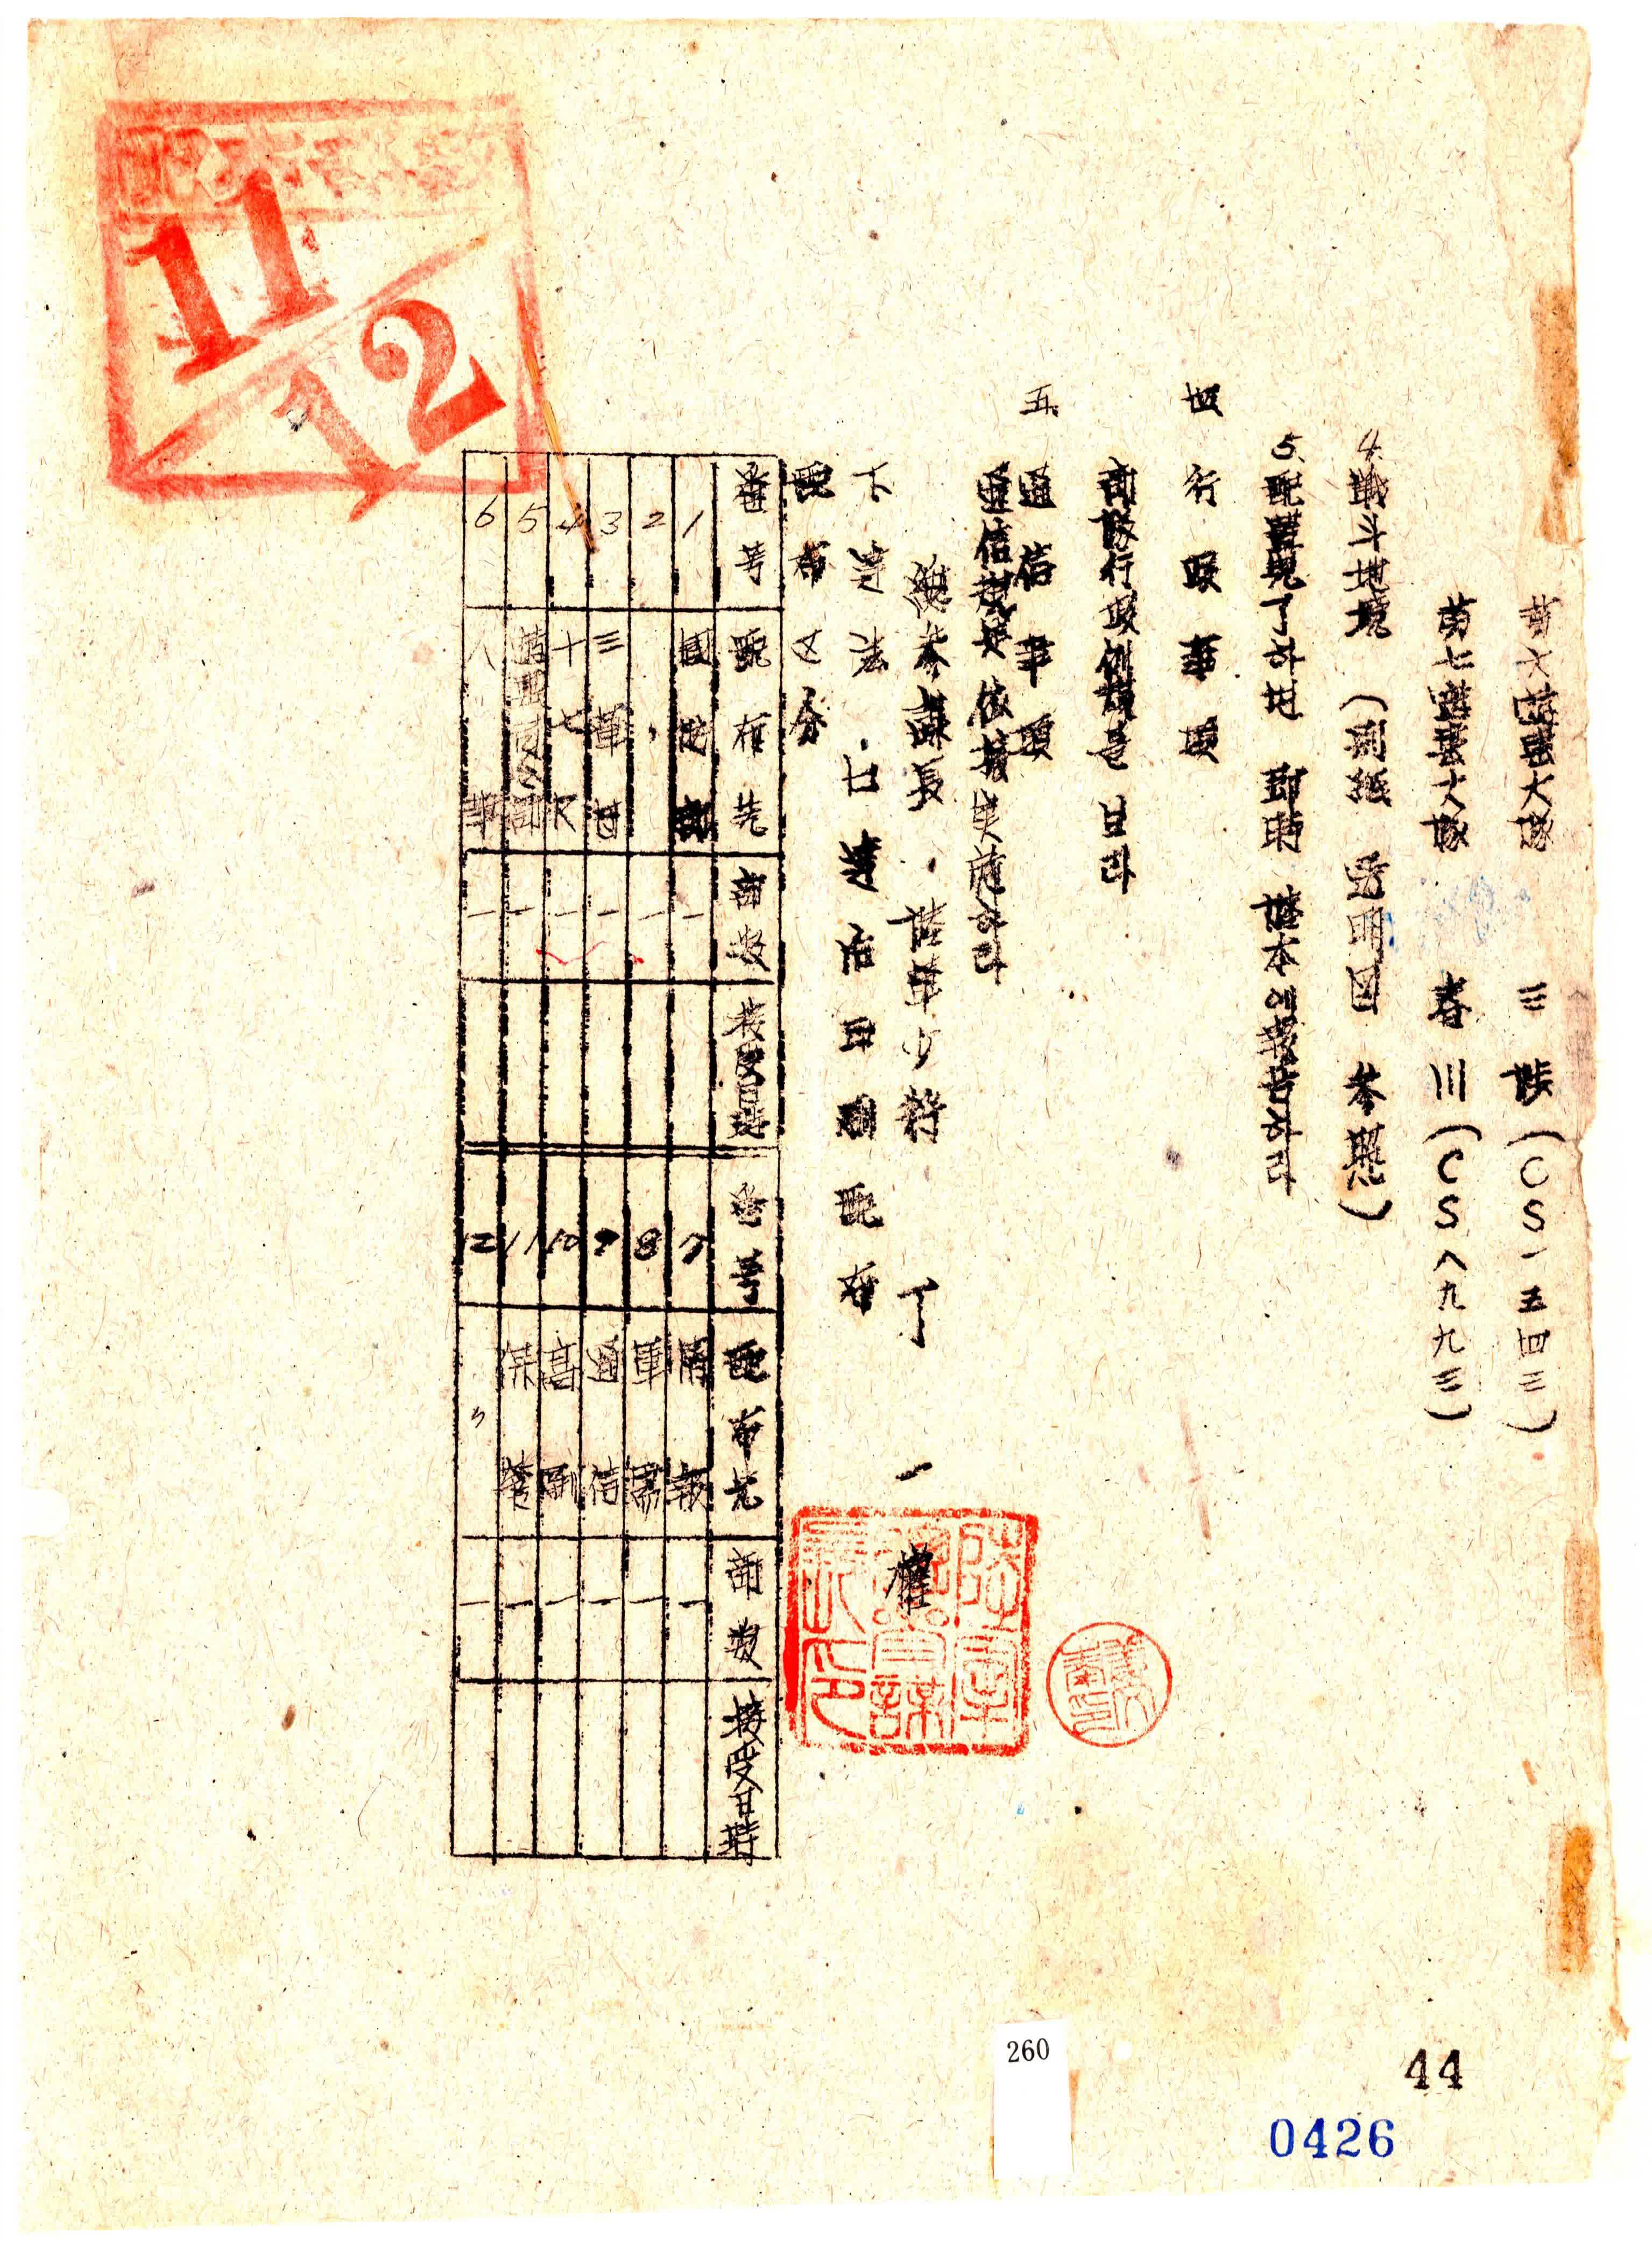 第六警備大隊 三陟(CS一五四三)
第七警備大隊 春川(CS八九九三)
4. 戰斗地境 (別紙 透明図 参照)
5. 配置完了하면 即時 陸本에 報告하라
四 行政事項
部隊行政例規를 보라
五. 通信事項
通信規定 依據 実施하라
総参謀長 陸軍少将 丁 一 權
下達法 口達後 印刷配布
配布区分
番号 配布先 部数 接受日時 番号 配布先 部数 接受日時
1 國防部 一 7 情報 一
2 〃 一 8 軍需 一
3 三軍団 一 9 通信 一
4 十七R 一 10 高副 一
5 一 11 一
6 八 一 12 〃 一
陸軍總參謀長印
11/12
260
44
0426